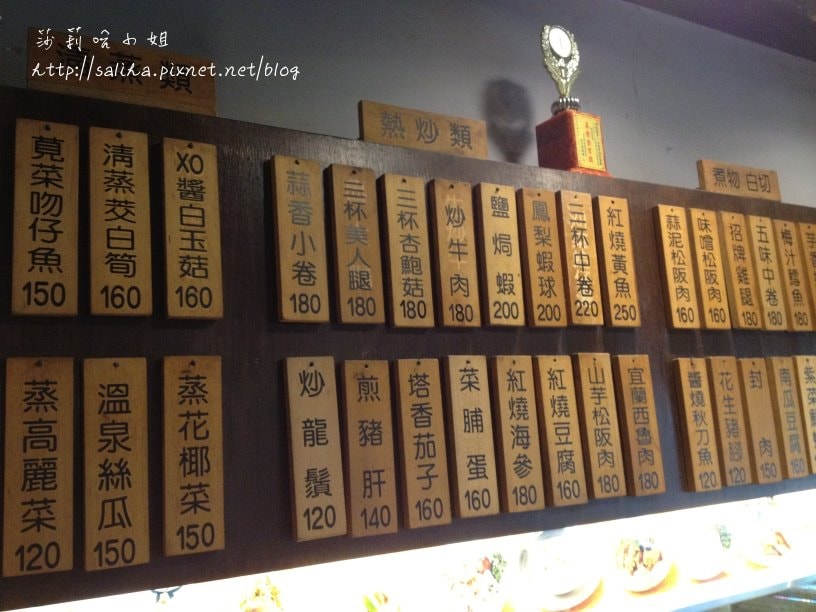 莎莉哈小姐
http://saliha.pixnet.net/blog
清蒸類
熱炒類
煮物 白切
莧菜吻仔魚 150
清蒸茭白筍 160
XO醬白玉菇 160
蒜香小卷 180
三杯美人腿 180
三杯杏鮑菇 180
炒牛肉 180
鹽焗蝦 200
鳳梨蝦球 200
三杯中卷 220
紅燒黃魚 250
蒜泥松阪肉 160
味噌松阪肉 160
招牌雞腿 180
五味中卷 180
梅汁鱈魚 180
蒸高麗菜 120
溫泉絲瓜 150
蒸花椰菜 150
炒龍鬚 120
煎豬肝 140
塔香茄子 160
菜脯蛋 160
紅燒海參 180
紅燒豆腐 160
山芋松阪肉 180
宜蘭西魯肉 180
醬燒秋刀魚 120
花生豬腳 120
封肉 150
南瓜豆腐 160
紫菜